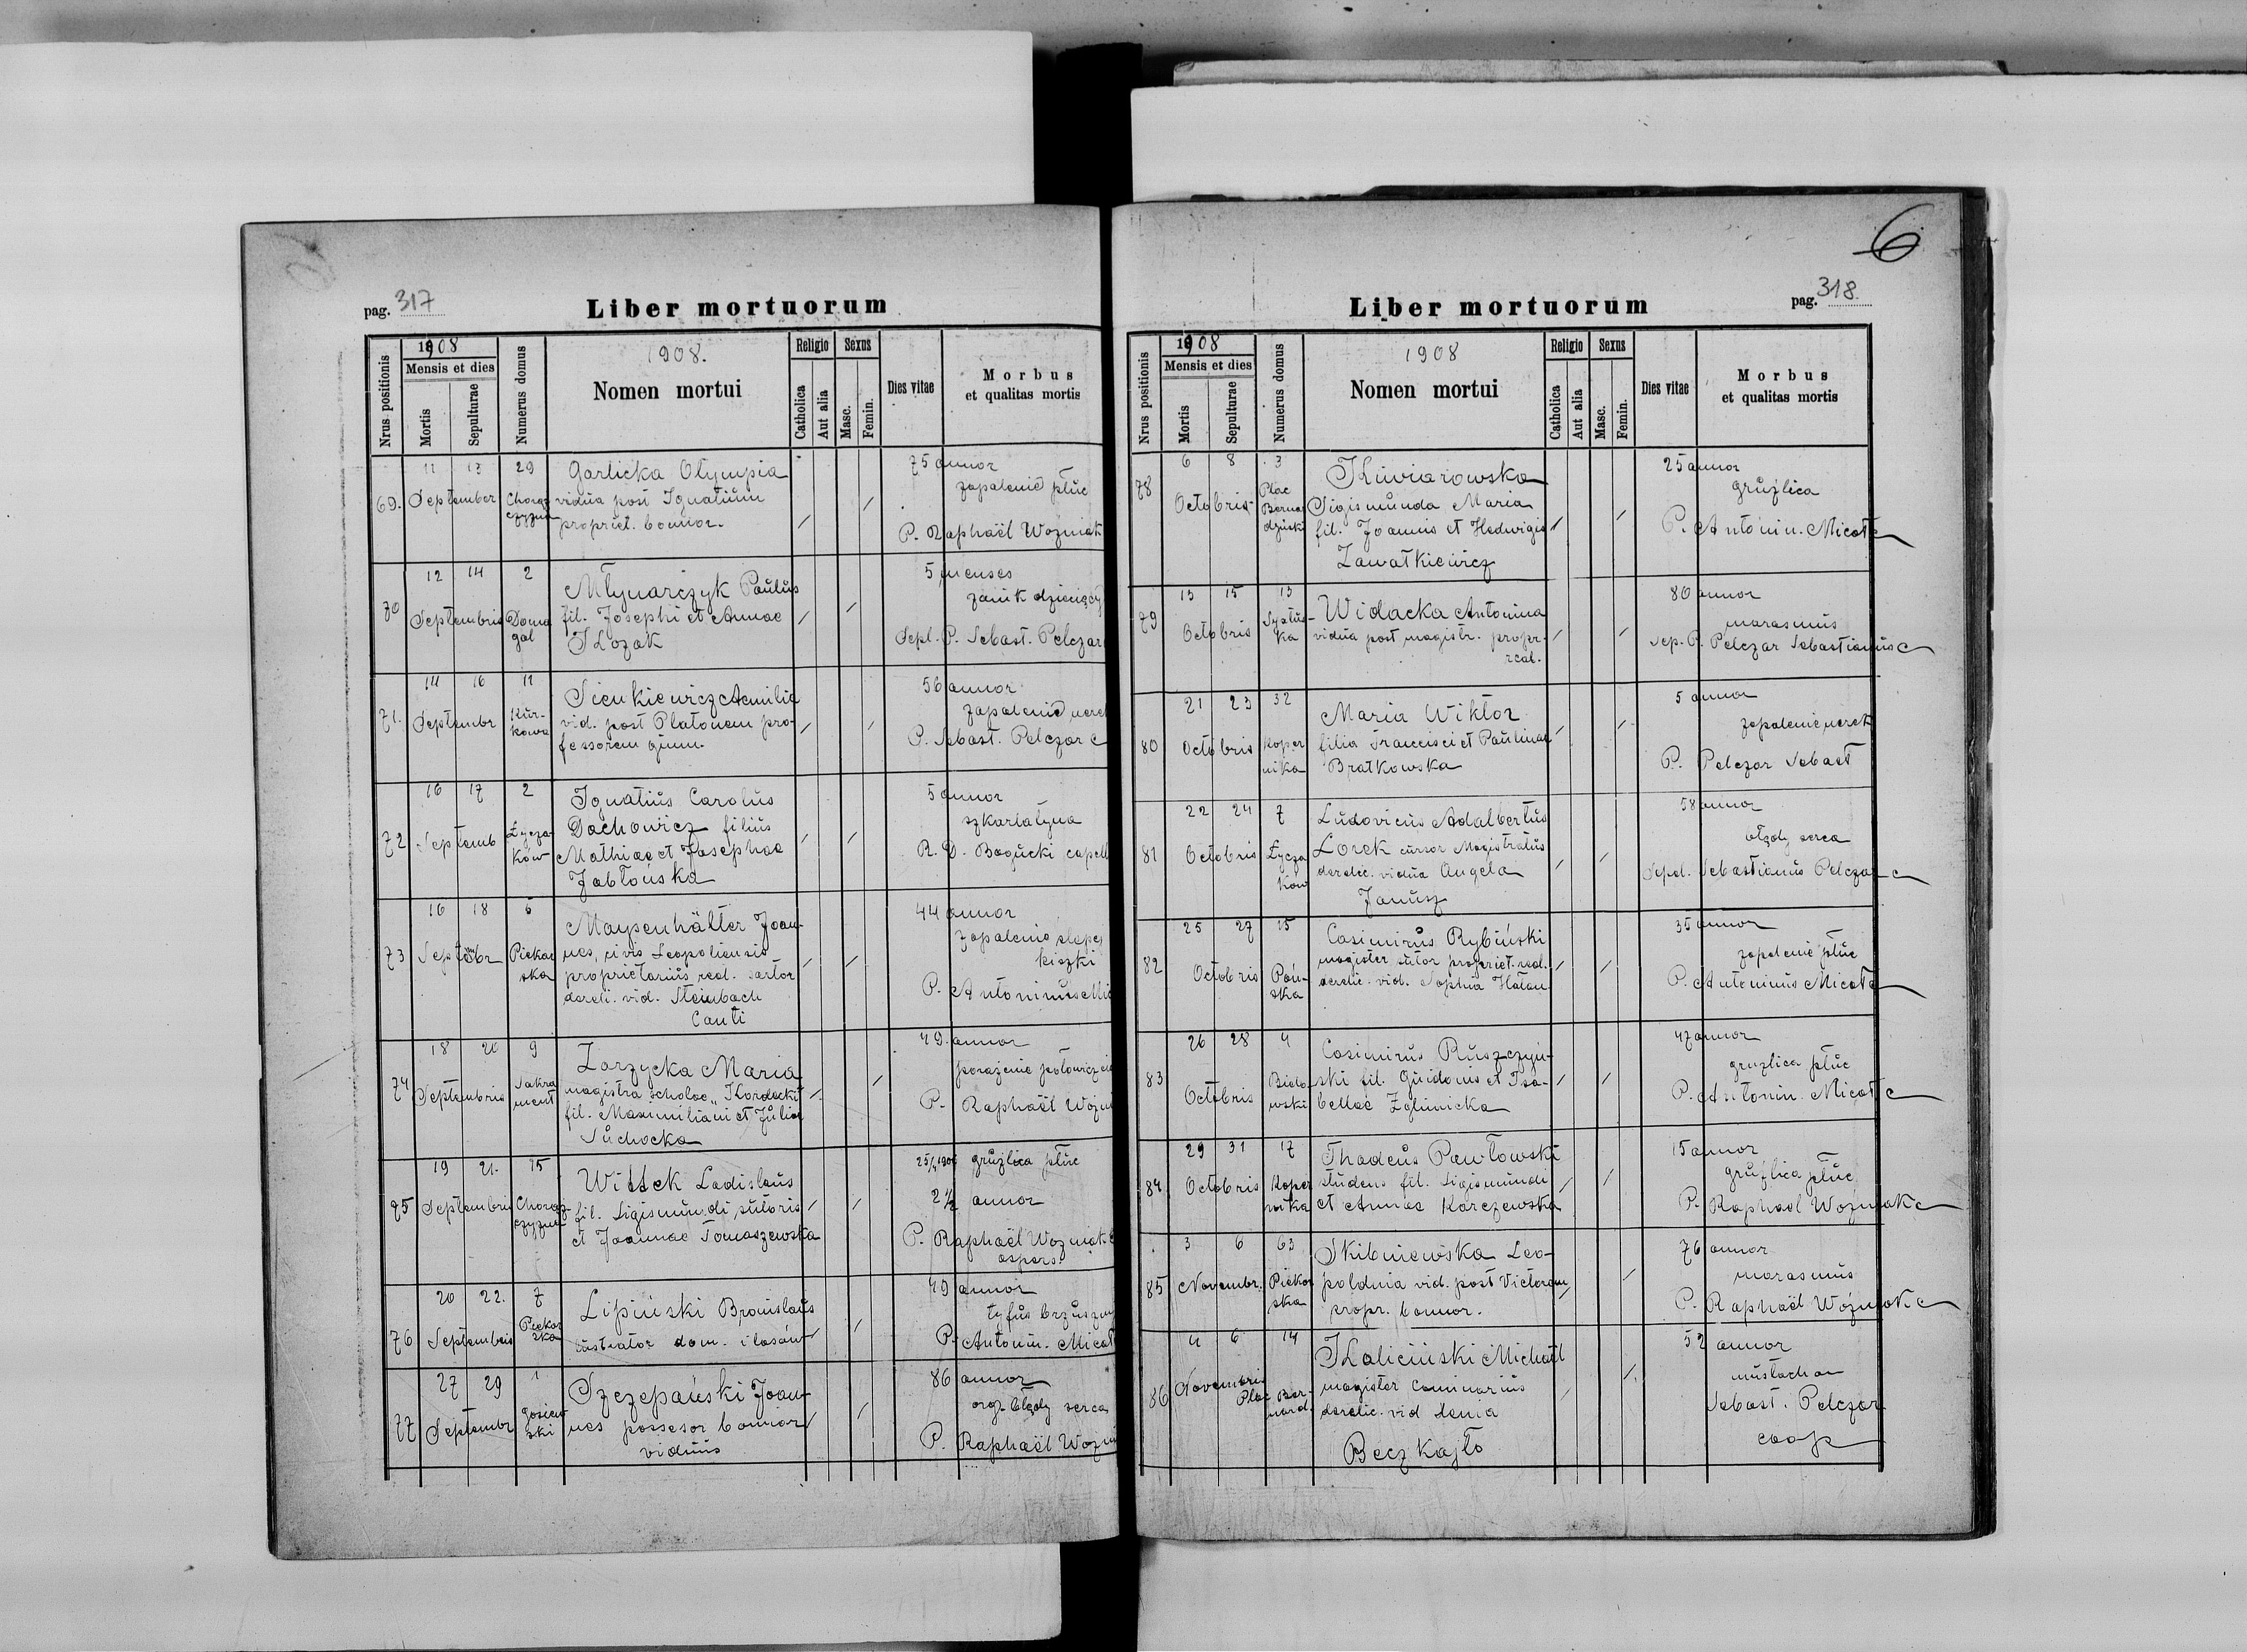 6
pag. 317
Liber mortuorum
Nrus positionis
1908
Mensis et dies
Mortis
Sepulturae
Numerus domus
1908.
Nomen mortui
Religio
Catholica
Aut alia
Sexus
Masc.
Femin.
Dies vitae
Morbus
et qualitas mortis
69. 11 17 29
September
Garlicka Olympia
vidua post Ignatium
propriet. bonor.
75 annor
zapalenie płuc
P. Raphaël Wozniak
70 12 14 2
Septembris Doma
gal
Młynarczyk Paulus
fil. Josephi et Annae
Kozak
5 menses
zanik dziecięcy
Sepl. P. Sebast. Pelczar
71. 14 16 11
Septembr Kur-
kowa
Sienkiewicz Aemilia
vid. post Platonem pro-
fessorem gimn.
56 annor
zapalenie nerek
P. Sebast. Pelczar c
72 16 17 2
Septemb Łycza-
ków
Ignatius Carolus
Dachowicz filius
Mathiae et Josephae
Jabłońska
5 annor
szkarlatyna
R. D. Bogucki capell
73 16 18 6
Septembr Piekar
ska
Maypenhälter Joan-
nes, civis Leopoliensis
proprietarius real. sartor
dereli. vid. Steinbach
Canti
44 annor
zapalenie ślepej
kiszki
P. Antoninus Mic
74 18 20 9
Septembris Sakra
ment
Zarzycka Maria
magistra scholae „Kordecki
fil. Maximiliani et Julia
Suchocka
49. annor
porażenie połowiczne
P. Raphaël Woźn
75 19 21. 15
Septembris Chorąż-
czyzna
Wittek Ladislaus
fil. Sigismundi, sutoris
et Joannae Tomaszewska
gruźlica płuc
2 1/2 annor
P. Raphaël Wozniak c
aspers.
76 20 22. 7
Septembris Piekar
ska
Lipiński Bronislaus
lustrator dom. i lasów
49 annor
tyfus brzuszny
P. Antonin. Micał
77 27 29 1
Septembr
Szczepański Joan-
nes possesor bonior
viduus
86 annor
org. błędy serca
P. Raphaël Wozn
Liber mortuorum
pag. 318.
Nrus positionis
1908
Mensis et dies
Mortis
Sepulturae
Numerus domus
1908
Nomen mortui
Religio
Catholica
Aut alia
Sexus
Masc.
Femin.
Dies vitae
Morbus
et qualitas mortis
78 6 8 3
Octobris Plac
Bernar
dziński
Kiwiarowska
Sigismunda Maria
fil. Joannis et Hedwigis
Zawałkiewicz
25 annor
gruźlica
P. Antonin. Micał c
79 13 15 13
Octobris Sykstus-
ka
Widacka Antonina
vidua post magistr. propr.
real.
80 annor
marasmus
Sep. P. Pelczar Sebastianus c
80 21 23 32
Octobris Koper
nika
Maria Wiktor
filia Francisci et Paulinae
Bratkowska
5 annor
zapalenie nerek
P. Pelczar Sebast
81 22 24 7
Octobris Łycza
ków
Ludovicus Adalbertus
Lorek cursor Magistratus
derelic. vidua Angela
Janusz
58 annor
błędy serca
Sepel. Sebastianus Pelczar c
82 25 27 15
Octobris Pań-
ska
Casimirus Rybiński
magister sutor propriet. real.
derelic. vid. Sophia
35 annor
zapalenie płuc
P. Antoninus Micał c
83 26 28 4
Octobris
Casimirus Ruszczyń-
ski fil. Guidonis et Isa-
bellae Zglinicka
47 annor
gruźlica płuc
P. Antonin. Micał c
84 29 31 17
Octobris Koper
nika
Thadeus Pawłowski
studens fil. Sigismundi
et Annae Karczewska
15 annor
gruźlica płuc
P. Raphael Woźniak c
85 3 6 63
Novembr. Piekar
ska
Skibniewska Leo-
poldnia vid. post Victorem
propr. bonnor.
76 annor
marasmus
P. Raphaël Woźniak c
86 4 6 14
Novembris
Plac Ber-
nard.
Kaliciński Michaël
magister caminarius
derelic. vid Xenia
Beczkajło
52 annor
Sebast. Pelczar
coop